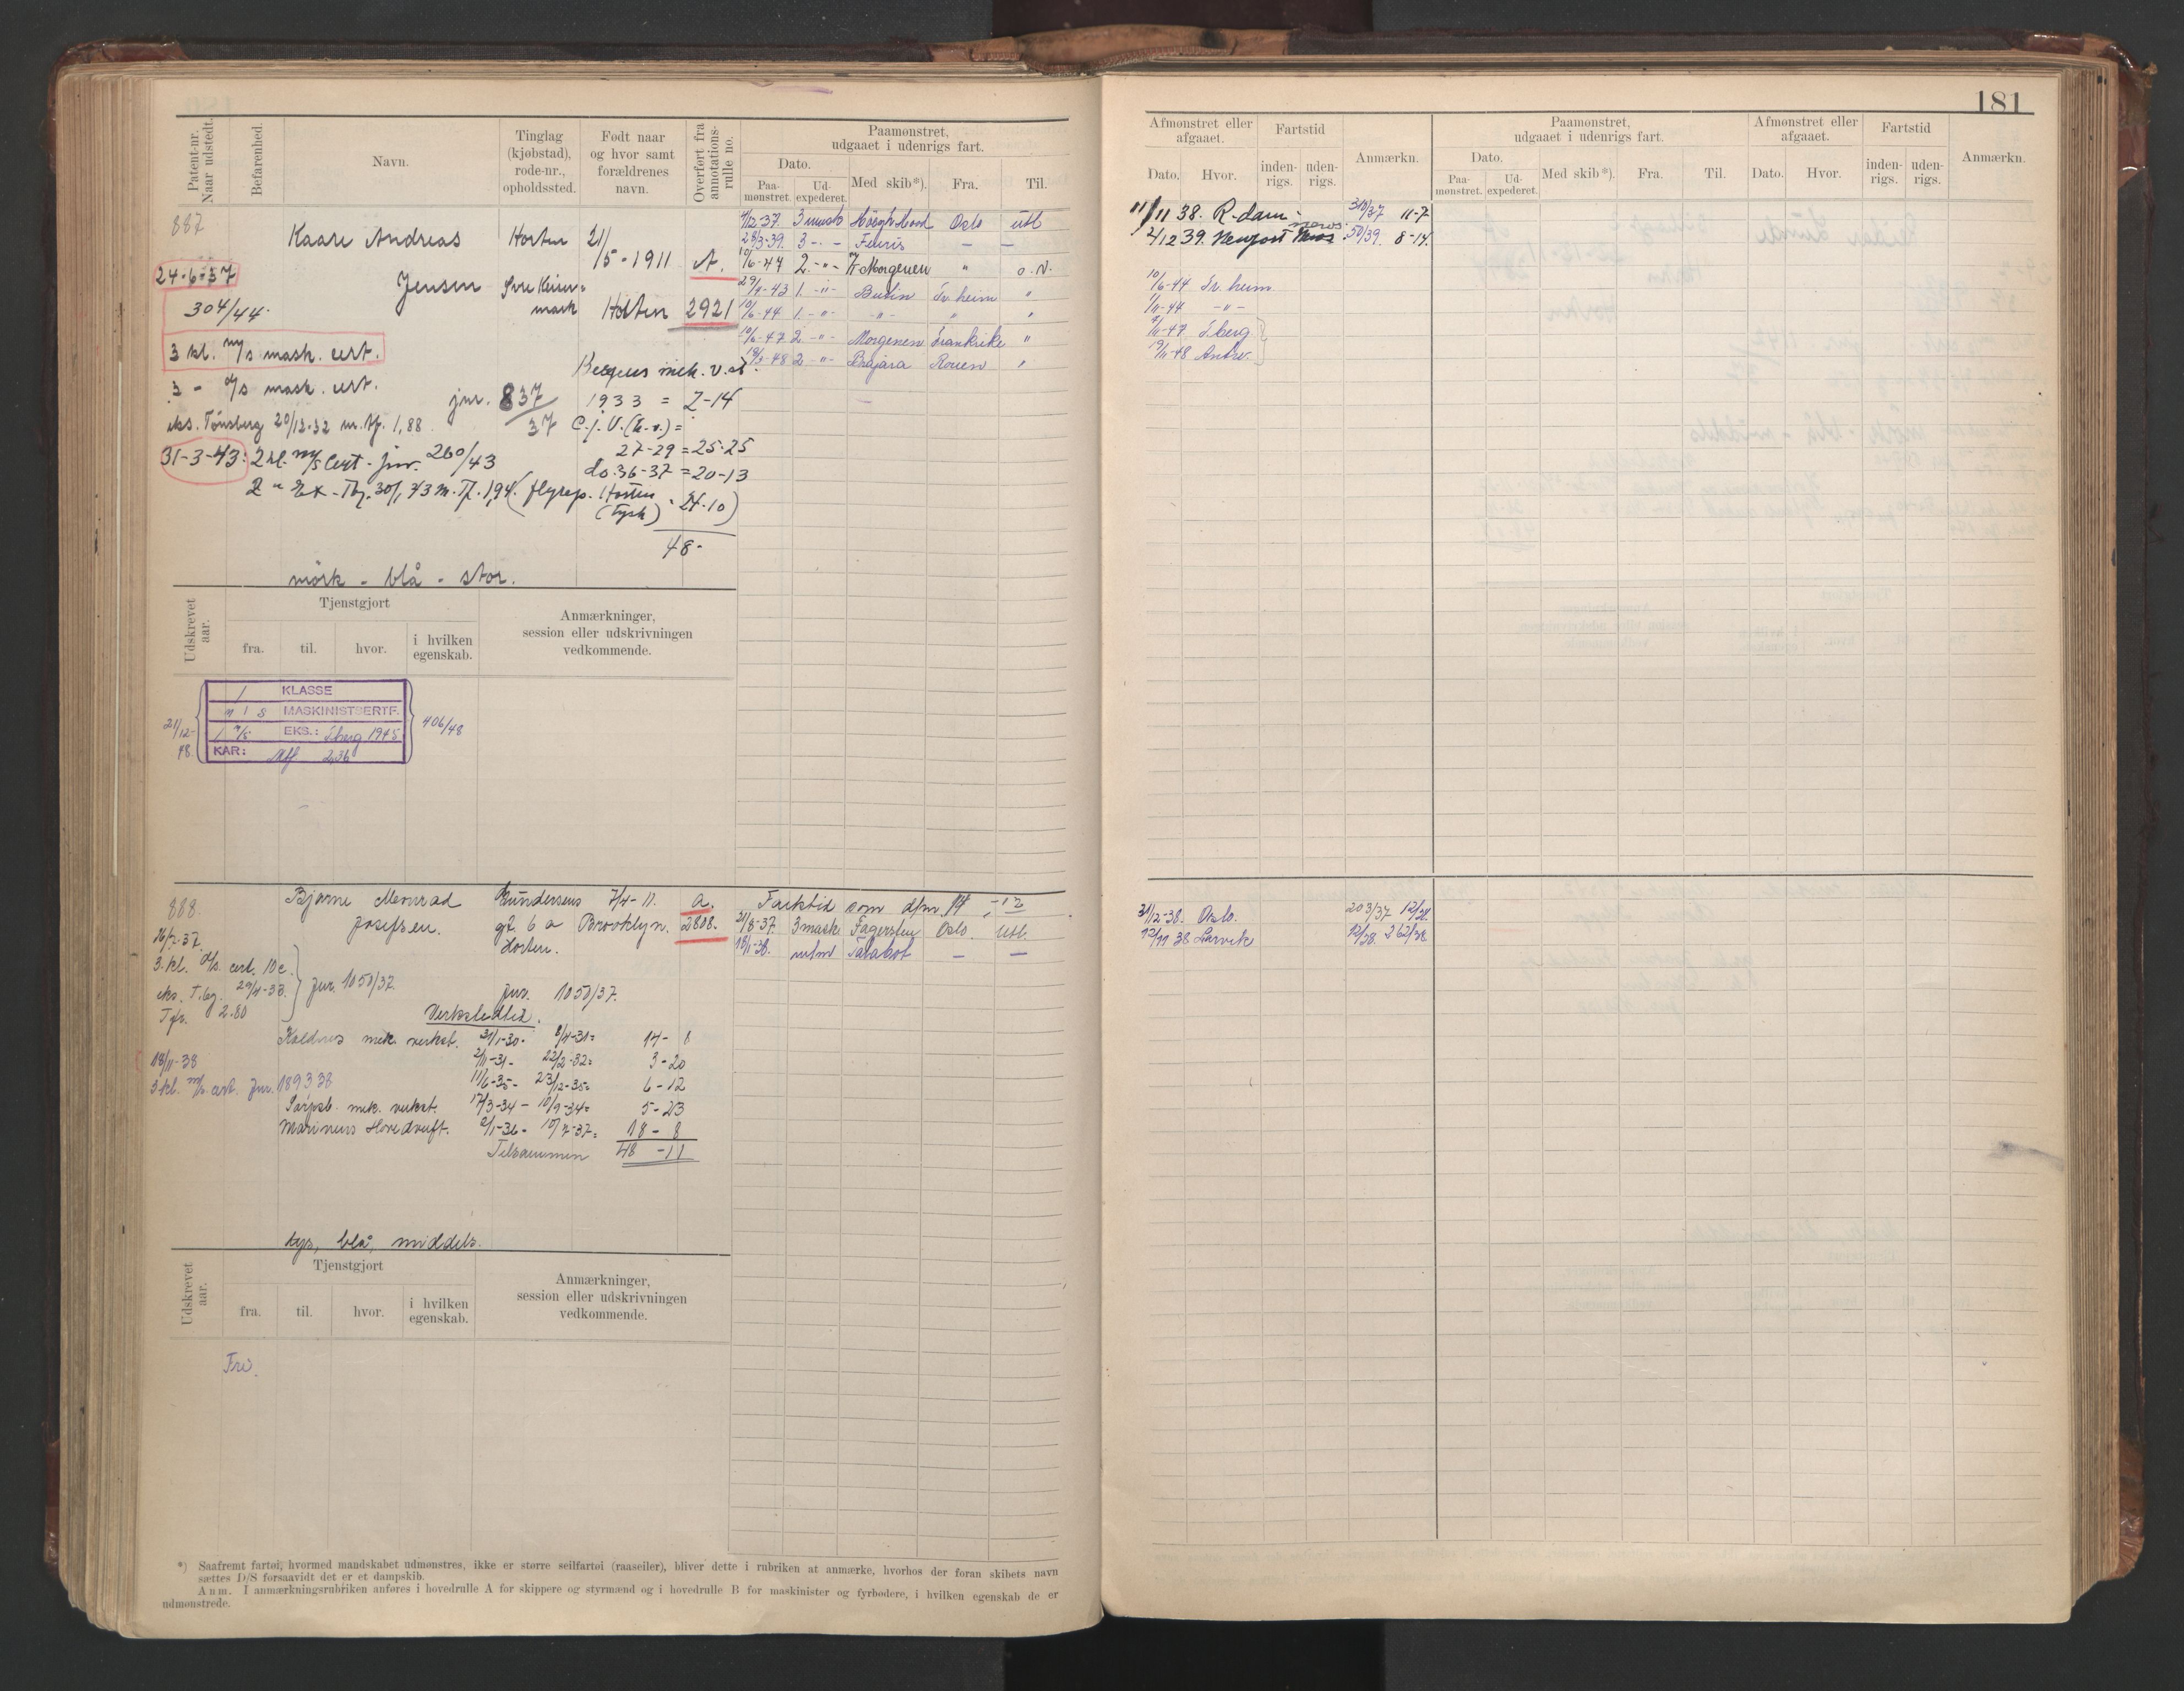 181
Patent-nr. Naar udstedt.
Befarenhed.
Navn.
Tinglag (kjøbstad), rode-nr., opholdssted.
Født naar og hvor samt forældrenes navn.
Overført fra annotations-rulle no.
Paamønstret, udgaaet i udenrigs fart.
Dato.
Paa-mønstret.
Ud-expederet.
Med skib*).
Fra.
Til.
887
Kaare Andreas
Jensen
Horten
mark
21/5-1911
Horten
A.
2921
24-6-37
304/44
3 kl. m/s mask. cert.
3 - d/s mask. cert.
eks. Tønsberg 20/12-32 m. kf. 1,88
jnr. 837/37
31-3-43: 2 kl. m/s Cert - jnr. 260/43
1933 = 2-14
27-29 = 25-25
do. 36-37 = 20-13
Horten (Tysk) 24-10)
48-
mörk - blå - stor.
4/12-37. 3 mask Oslo utl
28/3-39. 3 - - Fernis — —
10/6-44 2. -"- Morgenen " o. N.
29/9-43 1. -"- Tr.heim "
10/6-44 1. -"- -"- " "
10/6-47 2 -"- Morgenen Frankrike "
18/3-48 2 -"- Bajara Rouen "
Udskrevet aar.
Tjenstgjort
fra.
til.
hvor.
i hvilken egenskab.
Anmærkninger, session eller udskrivningen vedkommende.
21/12-48.
1 KLASSE
m/s MASKINISTSERTF.
EKS.: 1945
KAR: Mtf 2,36
406/48
888.
Bjarne Monrad
Josefsen.
Gundersens
gt. 6 a
Horten.
7/4-11.
Brooklyn.
a.
2808.
Farktid som
21/8-37. 3 mask Fagersten Oslo. Utl.
18/1-38. Talabot — —
16/7-37.
3. kl. d/s. cert. 10c.
eks. T.bg. 29/4-33.
2.80
jnr. 1050/37.
Jnr. 1050/37.
Verkstedtid.
Kaldnes mek. verkst. 31/1-30 - 8/4-31 = 14 - 8
2/11-31 - 22/2-32 = 3-20
11/6-35 - 23/12-35 = 6-12
Sarpsb. mek. verkst. 17/3-34 - 10/9-34 = 5-23
Marinens Hovedverft. 2/1-36 - 10/7-37 = 18 - 8
Tilsammen 48 - 11
18/11-38
3 kl. m/s. cert. Jnr. 1893 38
lys, blå, middels.
Udskrevet aar.
Tjenstgjort
fra.
til.
hvor.
i hvilken egenskab.
Anmærkninger, session eller udskrivningen vedkommende.
Fri.
*) Saafremt fartøi, hvormed mandskabet udmønstres, ikke er større seilfartøi (raaseiler), bliver dette i rubriken at anmærke, hvorhos der foran skibets navn
sættes D/S forsaavidt det er et dampskib.
Anm. I anmærkningsrubriken anføres i hovedrulle A for skippere og styrmænd og i hovedrulle B for maskinister og fyrbødere, i hvilken egenskab de er
udmønstrede.
Afmønstret eller afgaaet.
Dato.
Hvor.
Fartstid
inden-rigs.
uden-rigs.
Anmærkn.
Paamønstret, udgaaet i udenrigs fart.
Dato.
Paa-mønstret.
Ud-expederet.
Med skib*).
Fra.
Til.
Afmønstret eller afgaaet.
Dato.
Hvor.
Fartstid
inden-rigs.
uden-rigs.
Anmærkn.
11/11 38. R-dam - 310/37 11-7
2/12 39. Newport News 50/39. 8-14.
10/6-44 Tr. heim
1/11-44 -"-
7/11-47
19/11-48 Antw.
31/12-38. Oslo. 203/37 12/38.
12/11 38 Larvik 12/38. 262/38.